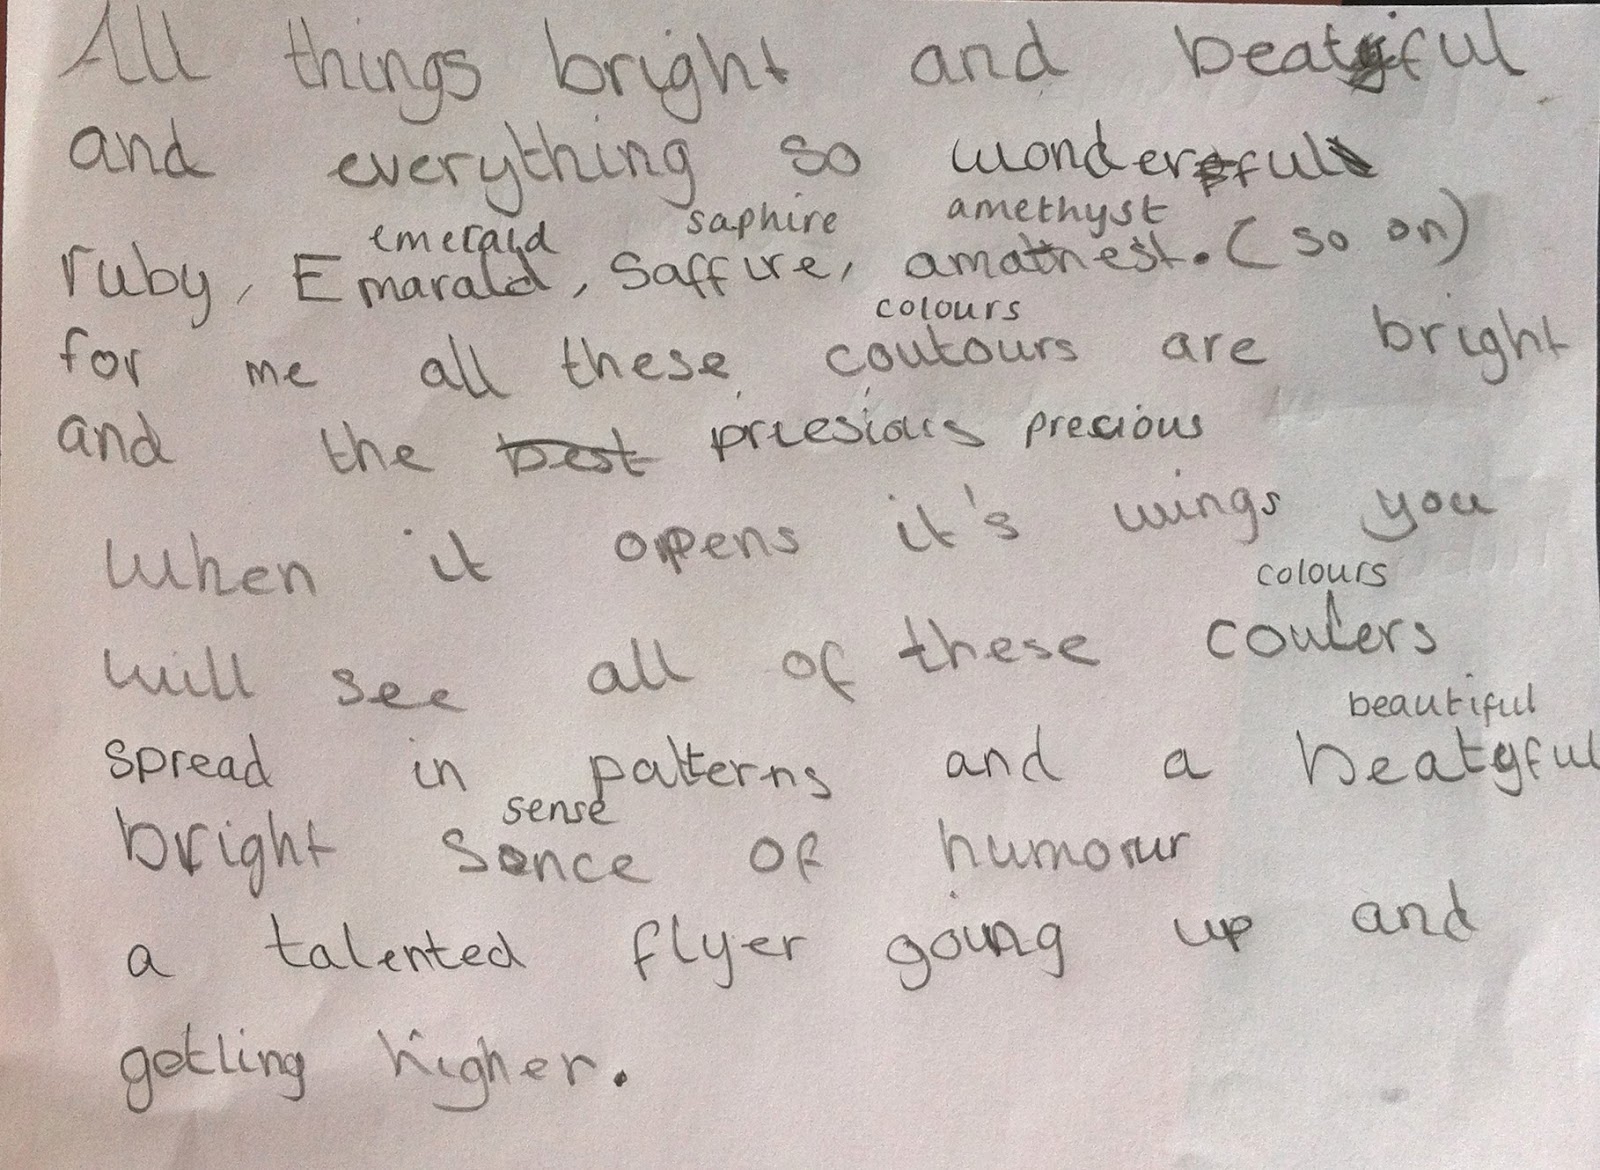 All things bright and beatyful
and everything so wonderful
emerald saphire amethyst
ruby, Emarald, Saffire, amathest. (so on)
colours
for me all these coulours are bright
and the best priesious precious
when it opens it's wings you
colours
will see all of these coulers
beautiful
spread in patterns and a beatyful
sense
bright sence of humour
a talented flyer going up and
getting higher.